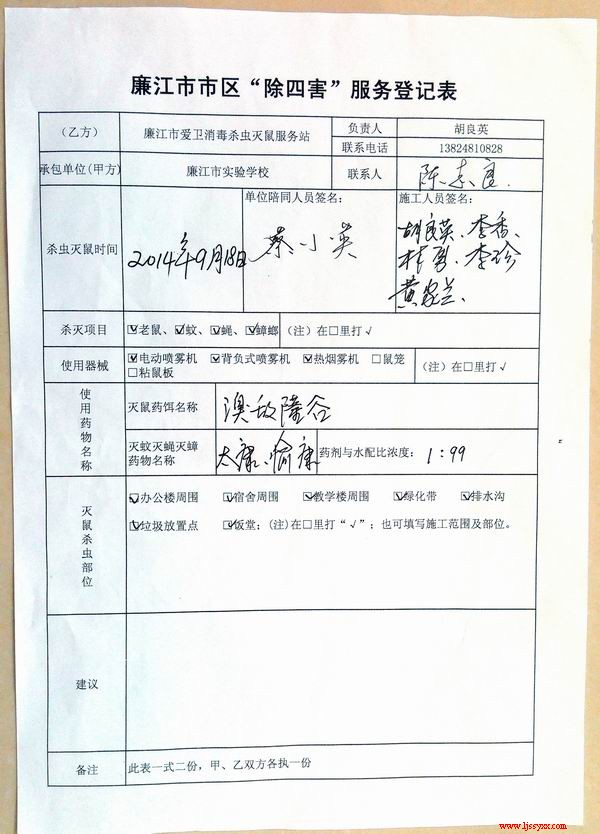 廉江市市区“除四害”服务登记表
（乙方） 廉江市爱卫消毒杀虫灭鼠服务站 负责人 胡良英
联系电话 13824810828
承包单位(甲方) 廉江市实验学校 联系人 陈志良.
杀虫灭鼠时间 2014年9月18日
单位陪同人员签名：
蔡小英
施工人员签名：
胡良英、李香、
李珍
黄家兰、
杀灭项目 ☑老鼠、☑蚊、☑蝇、☑蟑螂 （注）在□里打√
使用器械 ☑电动喷雾机 ☑背负式喷雾机 ☑热烟雾机 □鼠笼
□粘鼠板 （注）在□里打√
使用药物名称
灭鼠药饵名称 澳敌隆谷
灭蚊灭蝇灭蟑
药物名称 太康、愉康 药剂与水配比浓度： 1:99
灭鼠杀虫部位
☑办公楼周围 ☑宿舍周围 ☑教学楼周围 ☑绿化带 ☑排水沟
☑垃圾放置点 ☑饭堂；(注)在□里打“√”；也可填写施工范围及部位。
建议
备注 此表一式二份，甲、乙双方各执一份
www.ljssyxx.com